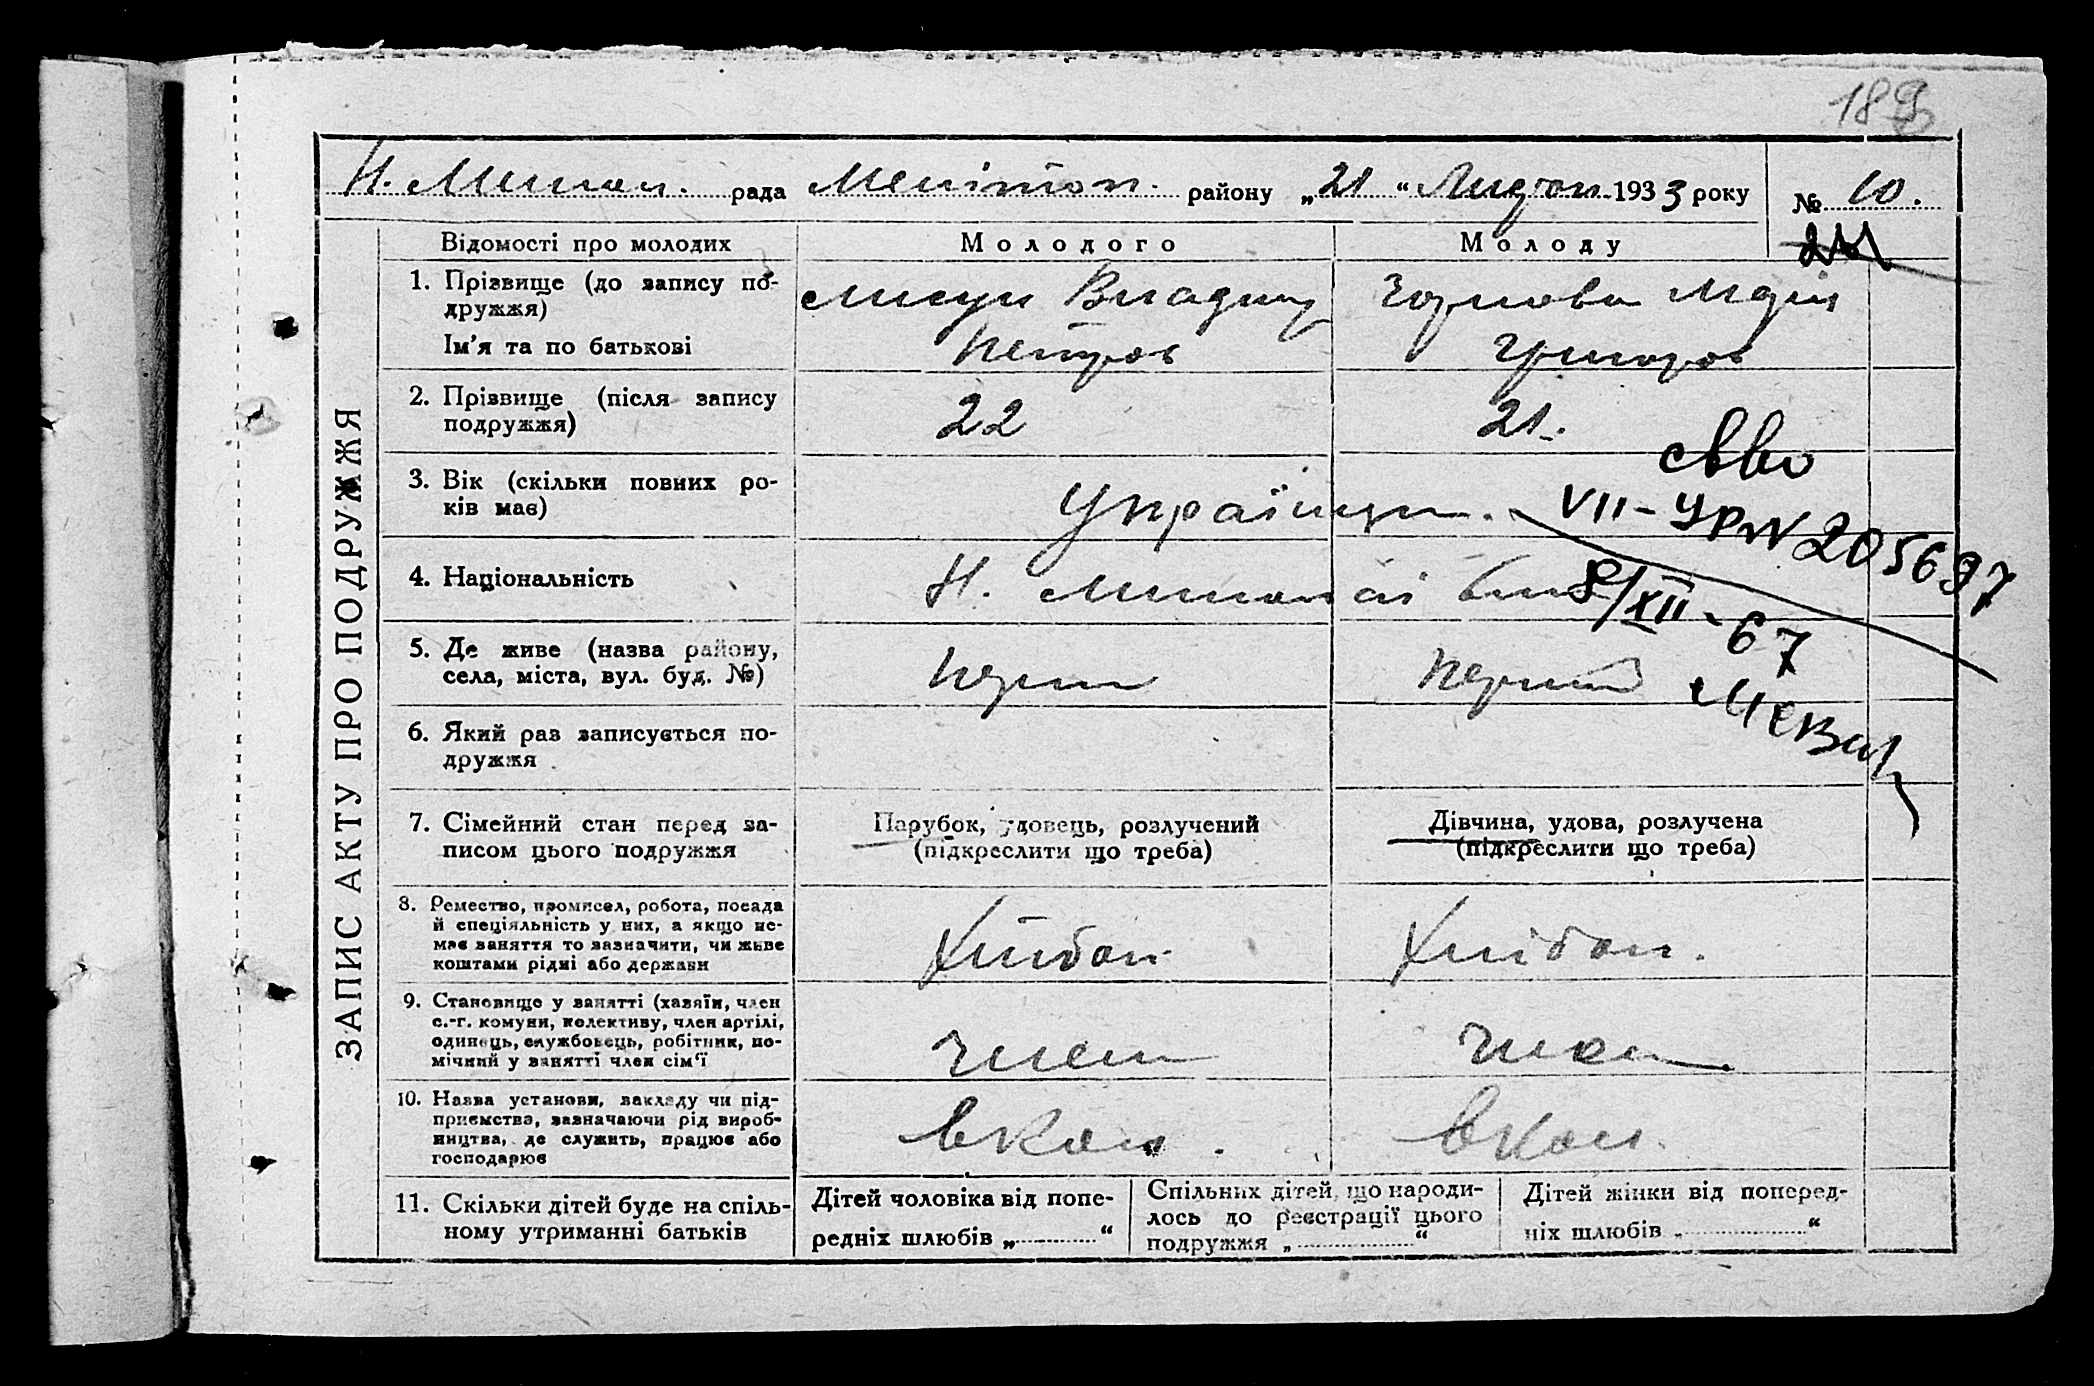 189
Н. Микол. рада Мелітоп. району „21“ Лютого 1933 року № 10.
Відомості про молодих Молодого Молоду
1. Прізвище (до запису по-
дружжя)
Ім'я та по батькові
Петров Григоров
2. Прізвище (після запису
подружжя)
22 21.
3. Вік (скільки повних ро-
ків має)
Українці.
4. Національність
Н. Микол
5. Де живе (назва району,
села, міста, вул. буд. №)
перш перший
6. Який раз записується по-
дружжя
7. Сімейний стан перед за-
писом цього подружжя
Парубок, удовець, розлучений
(підкреслити що треба)
Дівчина, удова, розлучена
(підкреслити що треба)
8. Ремество, промисел, робота, посада
й спеціяльність у них, а якщо не-
має заняття то зазначити, чи живе
коштами рідні або держави
Хлібоп. Хлібоп.
9. Становище у занятті (хазяїн, член
с.-г. комуни, колективу, член артілі,
одинець, службовець, робітник, по-
мічний у занятті член сім'ї
член член
10. Назва установи, закладу чи під-
приємства, зазначаючи рід вироб-
ництва, де служить, працює або
господарює
в кол. в кол.
11. Скільки дітей буде на спіль-
ному утриманні батьків
Дітей чоловіка від попе-
редніх шлюбів „ “
Спільних дітей, що народи-
лось до реєстрації цього
подружжя „ “
Дітей жінки від поперед-
ніх шлюбів „ “
ЗАПИС АКТУ ПРО ПОДРУЖЖЯ
VII-УР № 205697
8/XII-67